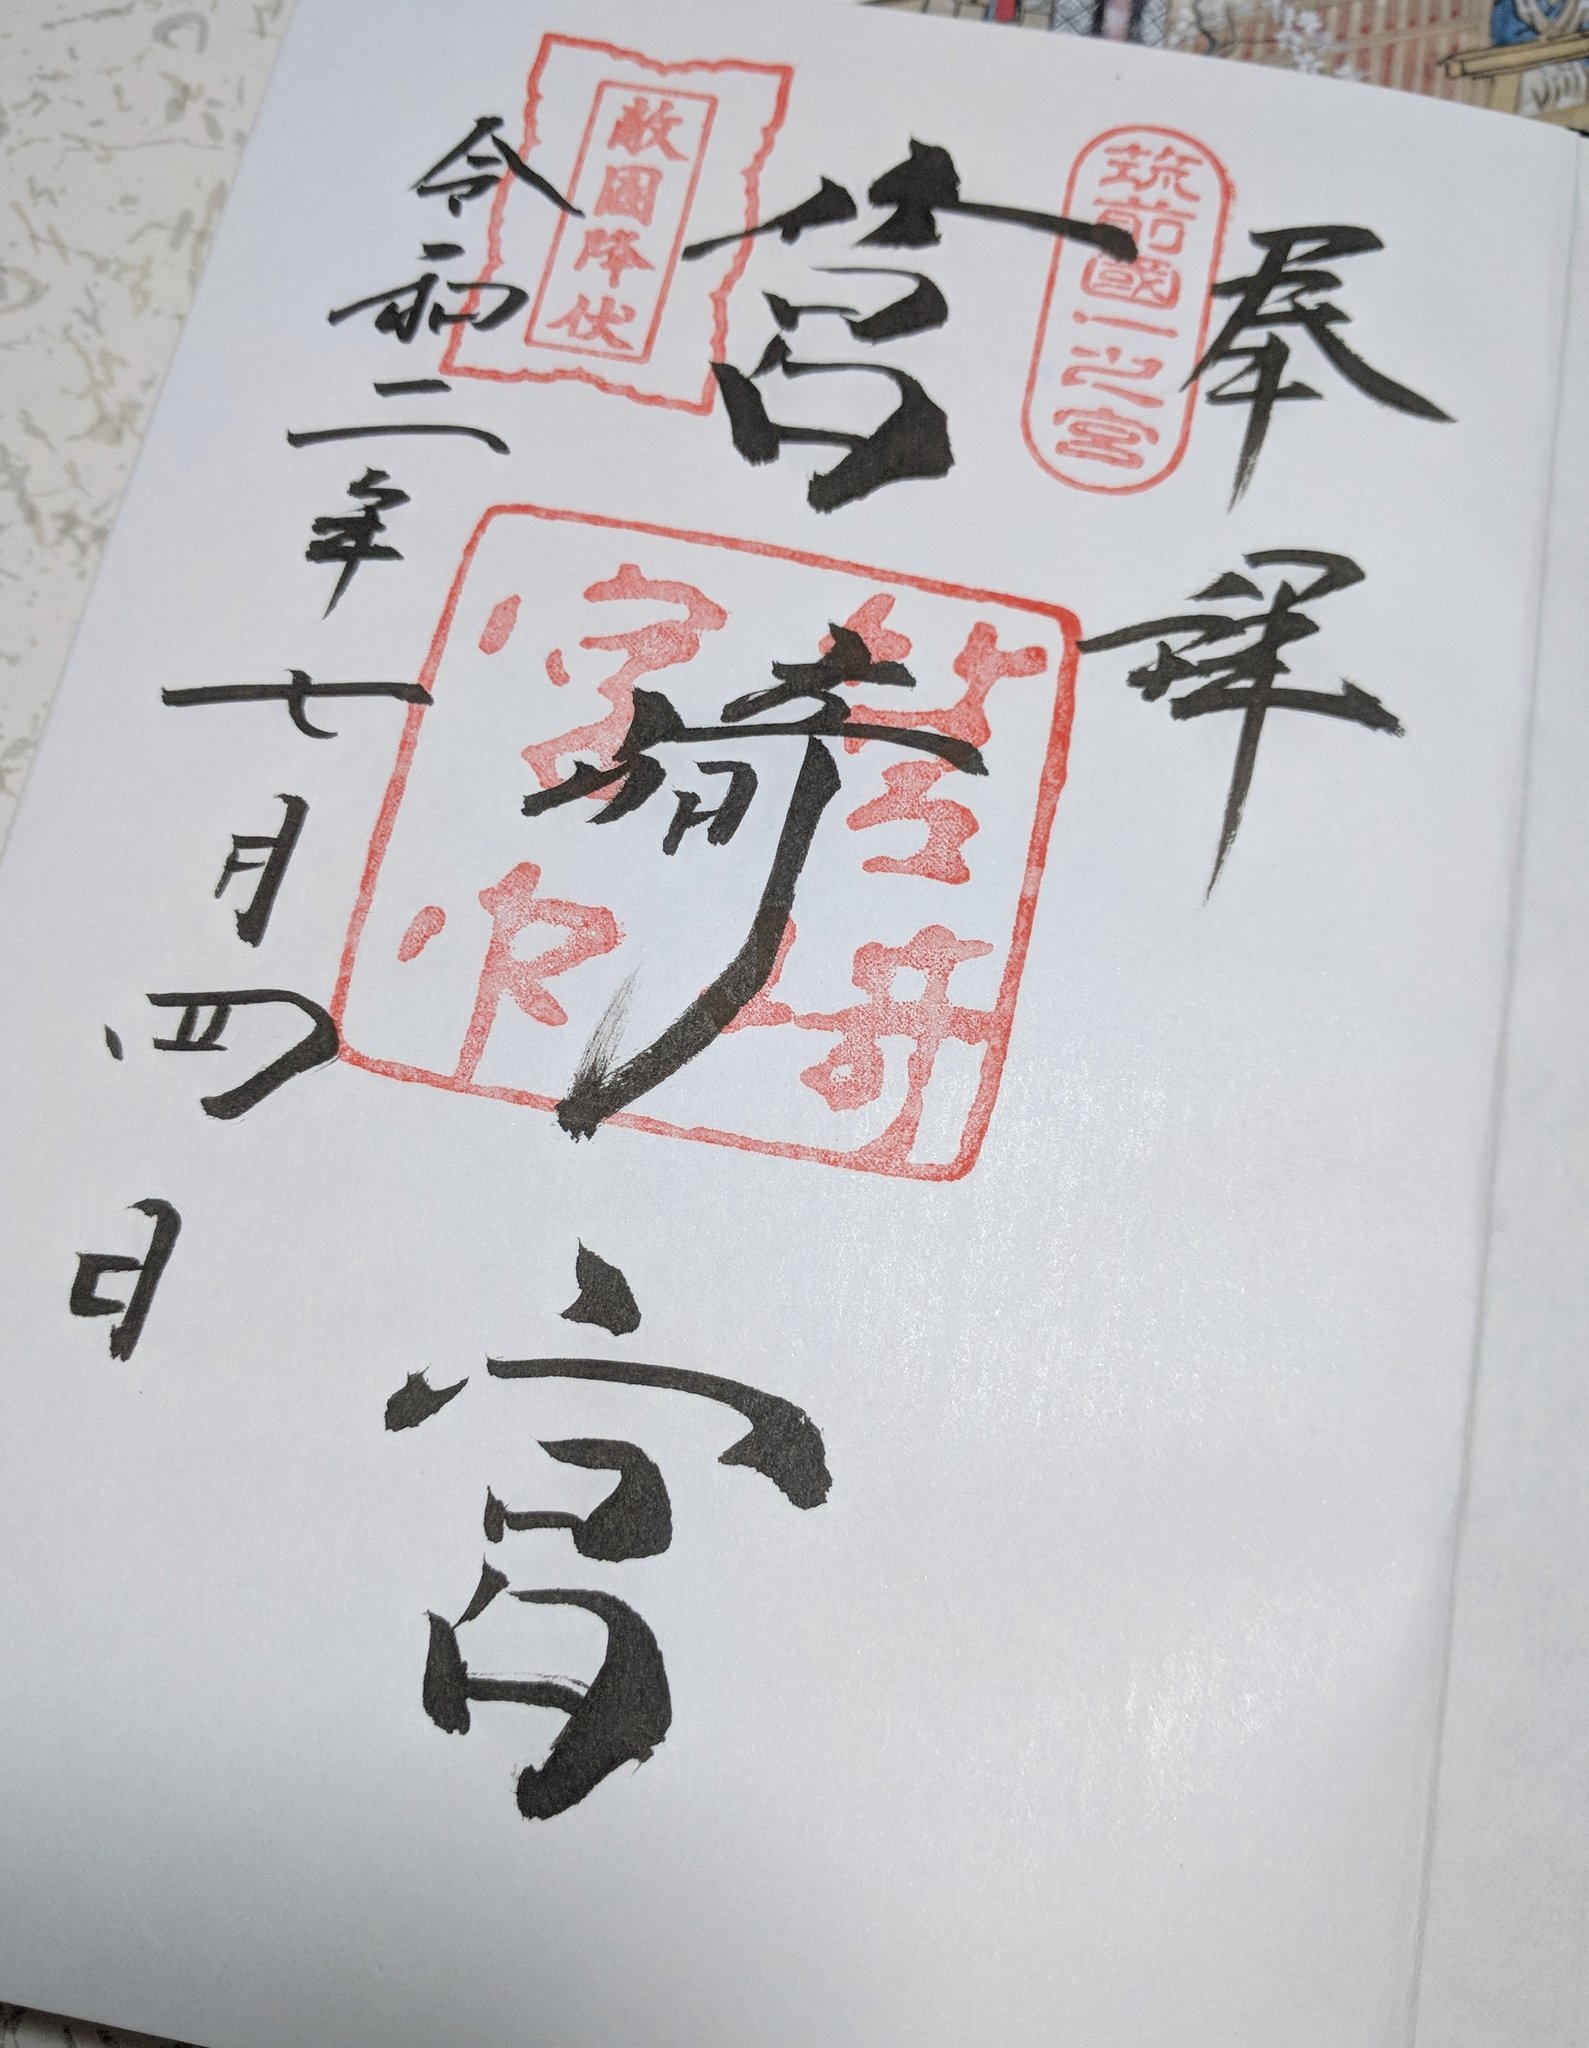 奉拝
筑前國一之宮
筥崎宮
敵國降伏
令和二年七月四日